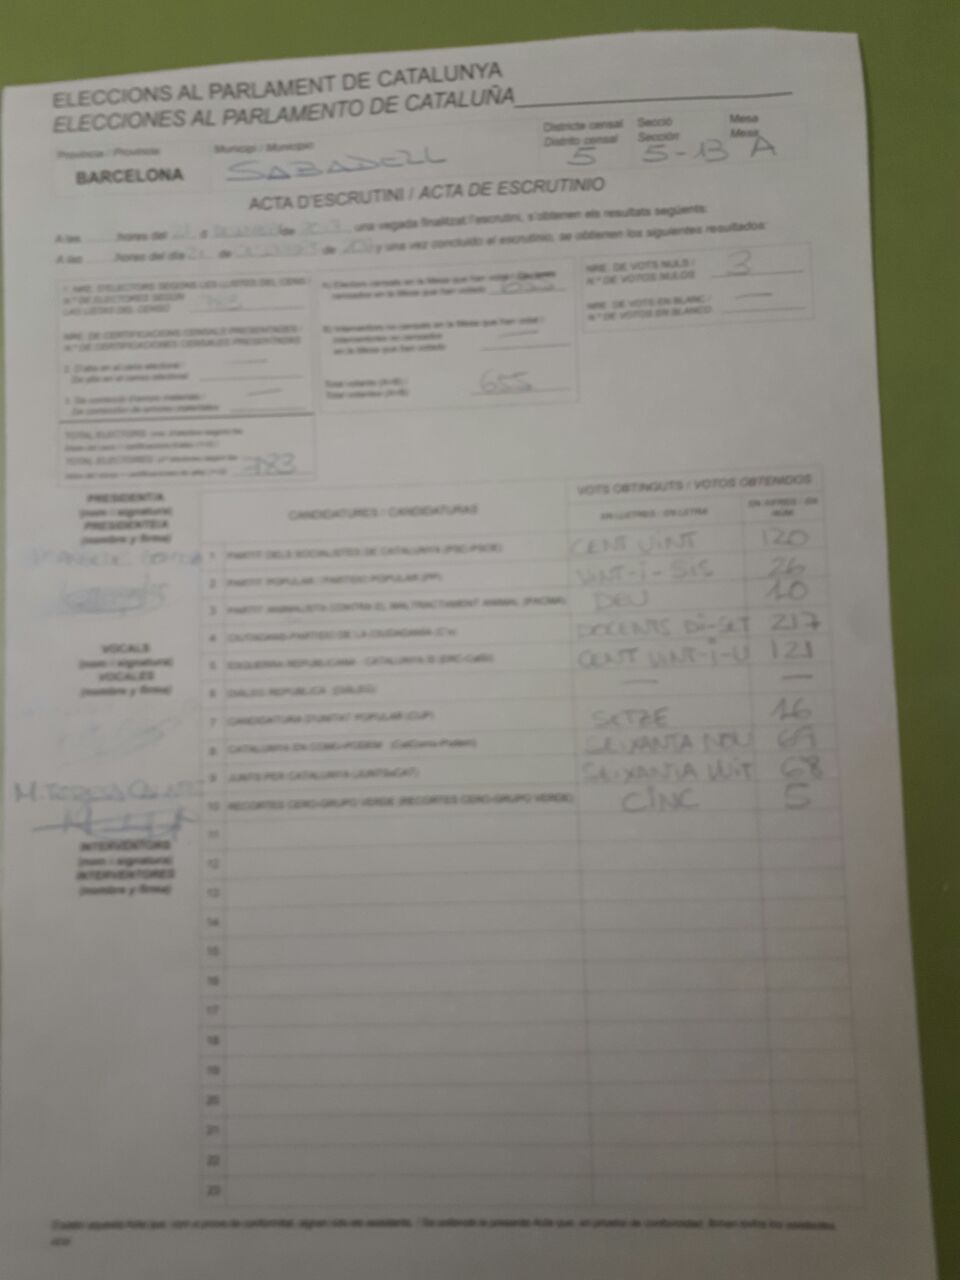 ELECCIONS AL PARLAMENT DE CATALUNYA
ELECCIONES AL PARLAMENTO DE CATALUÑA
Província / Provincia Municipi / Municipio Districte censal Secció Mesa
Distrito censal Sección Mesa
BARCELONA SABADELL 5 5-13 A
ACTA D'ESCRUTINI / ACTA DE ESCRUTINIO
A les hores del d de una vegada finalitzat l'escrutini, s'obtenen els resultats següents:
A las horas del día de de y una vez concluido el escrutinio, se obtienen los siguientes resultados:
1. NRE. D'ELECTORS SEGONS LES LLISTES DEL CENS /
N.º DE ELECTORES SEGÚN
LAS LISTAS DEL CENSO
NRE. DE CERTIFICACIONS CENSALS PRESENTADES /
N.º DE CERTIFICACIONES CENSALES PRESENTADAS
A) Electors censats en la Mesa que han votat / Electores
censados en la Mesa que han votado
B) Interventors no censats en la Mesa que han votat /
Interventores no censados
en la Mesa que han votado
Total votants (A+B) /
Total votantes (A+B) 655
NRE. DE VOTS NULS /
N.º DE VOTOS NULOS 3
NRE. DE VOTS EN BLANC /
N.º DE VOTOS EN BLANCO —
TOTAL ELECTORS
TOTAL ELECTORES 783
PRESIDENT/A
(nom i signatura)
PRESIDENTE/A
(nombre y firma)
VOCALS
(nom i signatura)
VOCALES
(nombre y firma)
M. TERESA
INTERVENTORS
(nom i signatura)
INTERVENTORES
(nombre y firma)
CANDIDATURES / CANDIDATURAS VOTS OBTINGUTS / VOTOS OBTENIDOS
EN LLETRES / EN LETRA EN XIFRES / EN NÚM.
1 PARTIT DELS SOCIALISTES DE CATALUNYA (PSC-PSOE) CENT VINT 120
2 PARTIT POPULAR / PARTIDO POPULAR (PP) VINT-I-SIS 26
3 PARTIT ANIMALISTA CONTRA EL MALTRACTAMENT ANIMAL (PACMA) DEU 10
4 CIUTADANS-PARTIDO DE LA CIUDADANÍA (C's) DOCENTS DI-SET 217
5 ESQUERRA REPUBLICANA - CATALUNYA SÍ (ERC-CatSí) CENT VINT-I-U 121
6 DIÀLEG REPÚBLICA (DIÀLEG) — —
7 CANDIDATURA D'UNITAT POPULAR (CUP) SETZE 16
8 CATALUNYA EN COMÚ-PODEM (CatComú-Podem) SEIXANTA NOU 69
9 JUNTS PER CATALUNYA (JUNTSxCAT) SEIXANTA VUIT 68
10 RECORTES CERO-GRUPO VERDE (RECORTES CERO-GRUPO VERDE) CINC 5
11
12
13
14
15
16
17
18
19
20
21
22
23